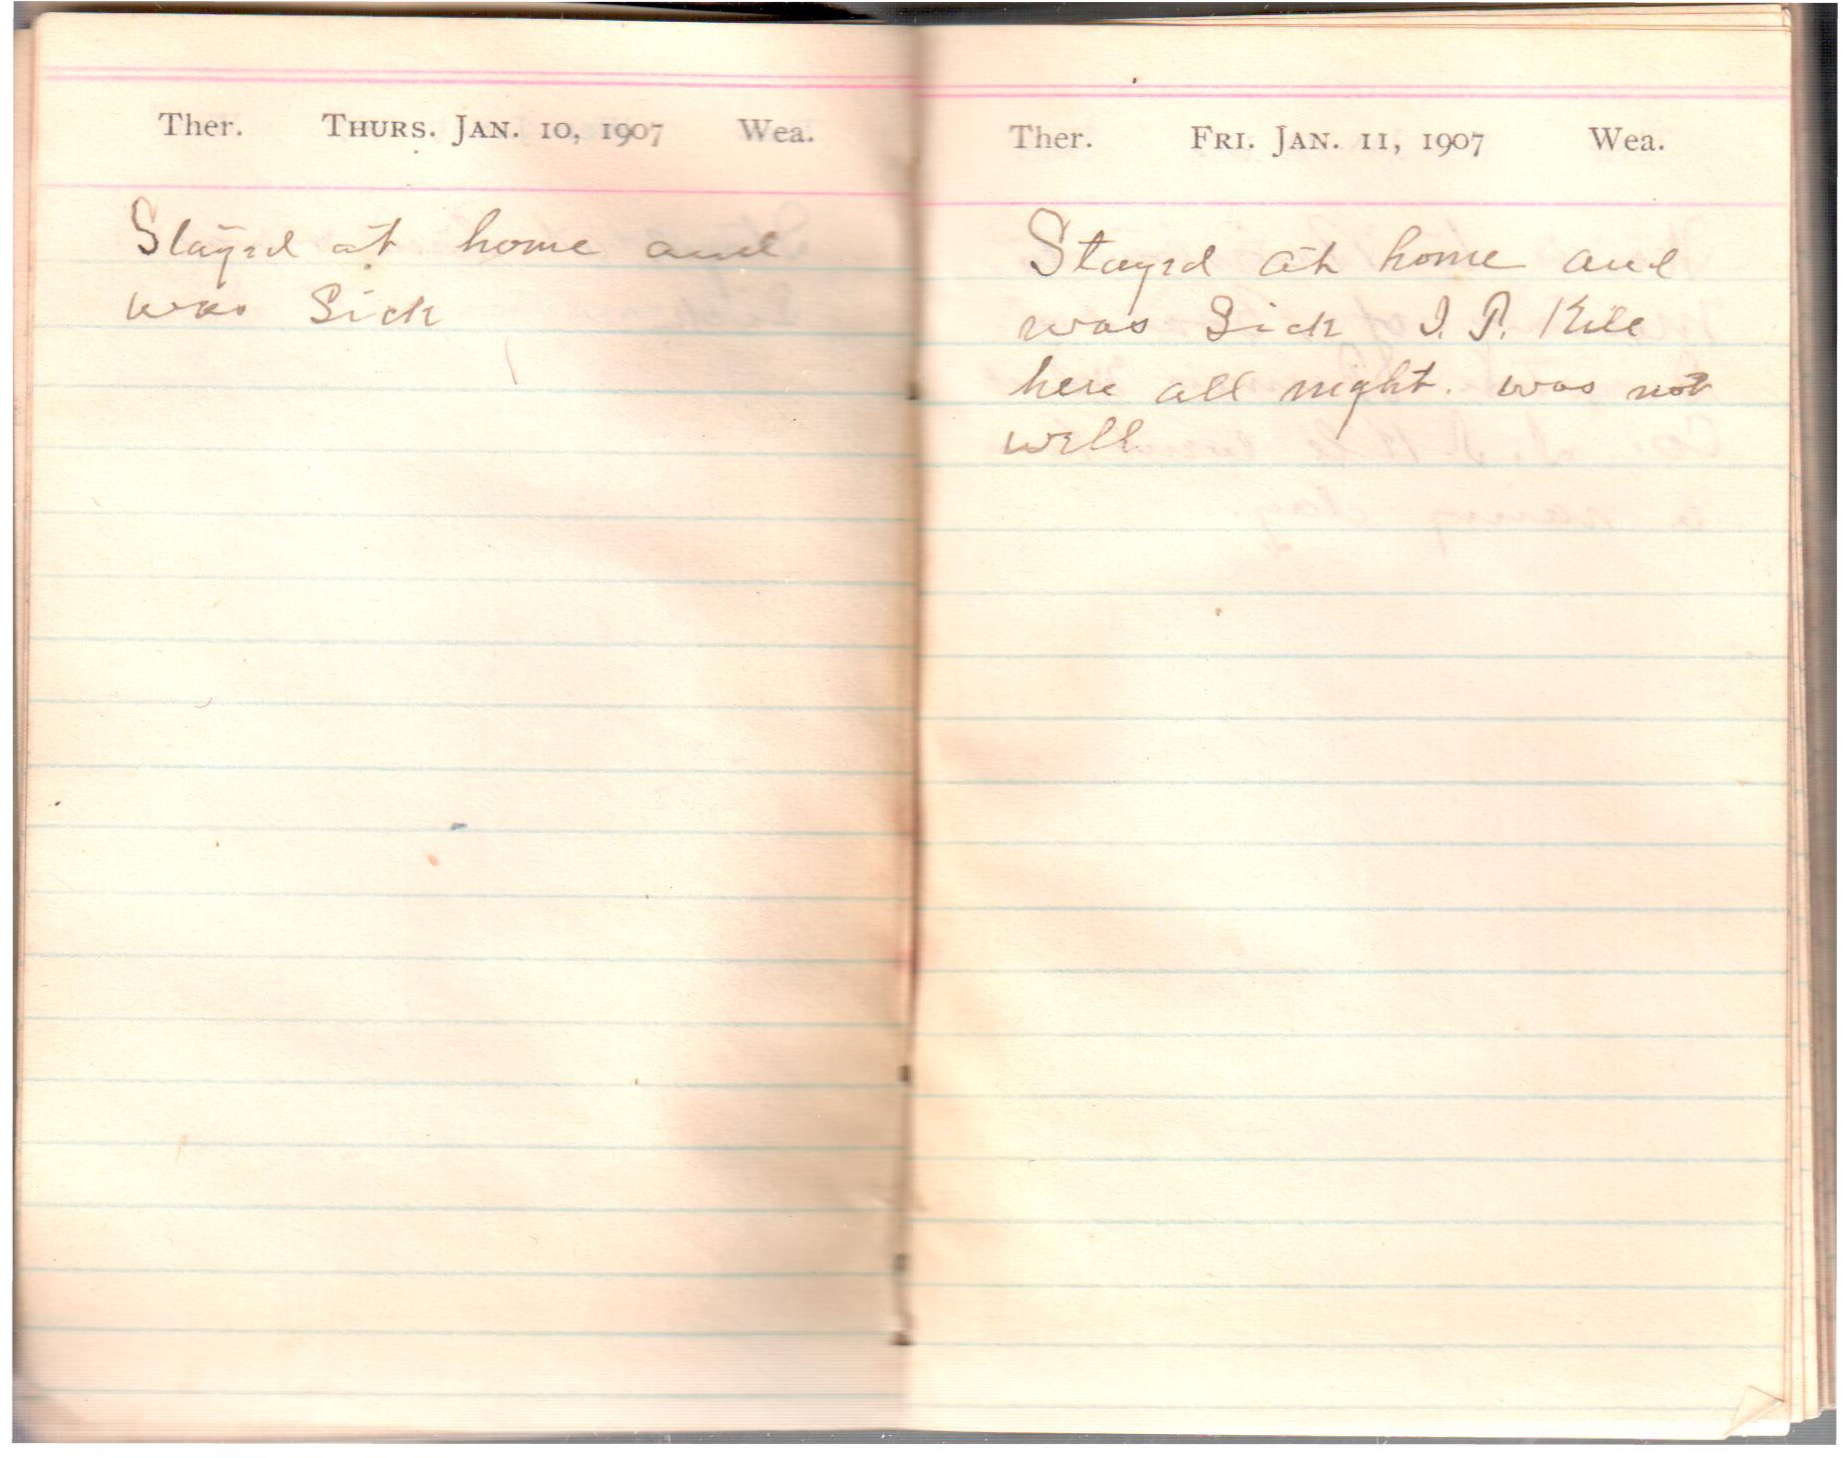 Ther. THURS. JAN. 10, 1907 Wea.
Stayed at home and
was Sick
Ther. FRI. JAN. 11, 1907 Wea.
Stayed at home and
was Sick I. P. Kile
here all night. was not
well.